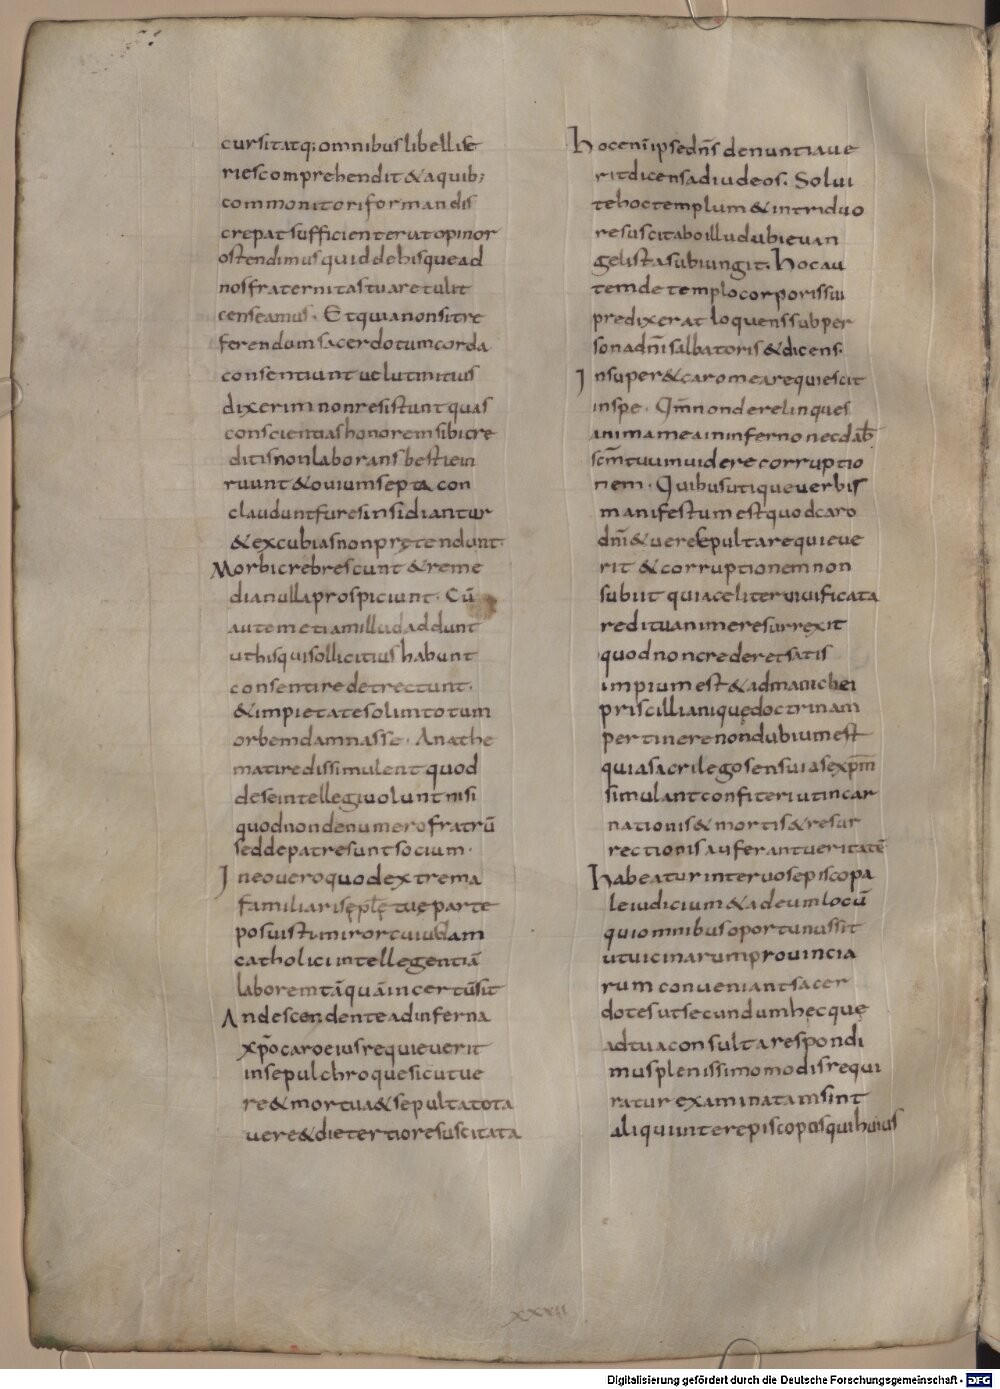 cursitatq; omnibus libellise
riescomprehendit&aquib;
commonitoriformamdis
crepatsufficienterutopinor
ostendimusquiddehisquead
nosfraternitastuaretulit
censeamus. Etquianonsitre
ferendumsacerdotumcorda
consentiuntuelutinitius
dixerimnonresistuntquas
conscientiashonoremsibicre
ditisnonlaboransbestiein
ruunt&ouiumsepta con
clauduntfuresinsidiantur
&excubiasnonprętendunt.
Morbicrebrescunt&reme
dianullaprospiciunt. Cū
autemetiamilludaddunt
uthisquisollicitiushabunt
consentiredetrectunt.
&impietatesolimtotum
orbemdamnasse. Anathe
matiredissimulent quod
deseintellegiuoluntnisi
quodnondenumerofratrū
seddepatresuntsocium.
Ineouero quodextrema
familiarisępłetuęparte
posuistimirorcuiusdam
catholiciintellegentiā
laboremtāquāincertūsit
Andescendenteadinferna
xp̄ocaroeiusrequieuerit
insepulchroquesicutue
re&mortua&sepultatota
uere&dietertioresuscitata
Hocenī ipsedn̄s denuntiaue
ritdicensadiudeos. Solui
tehoctemplum&intriduo
resuscitaboilludubieuan
gelistasubiungit. Hocau
temdetemplocorporissui
predixerat loquenssubper
sonadn̄isalbatoris&dicens.
Insuper&caromearequiescit
inspe. Qm̄nonderelinques
animameaininferno necdab̄
scm̄tuumuiderecorruptio
nem. Quibusutiqueuerbis
manifestumestquodcaro
dn̄i&ueresepultarequieue
rit &corruptionemnon
subiit quiaceliteruiuificata
redituanimeresurrexit
quodnoncrederetsatis
impiumest&admanichei
priscillianiquędoctrinam
pertinerenondubiumest
quiasacrilegosensuiasexpm̄
simulantconfiteriutincar
nationis&mortis&resur
rectionisauferantueritatē
Habeaturinteruosepiscopa
leiudicium&adeumlocū
quiomnibusoportunussit
utuicinarumprouincia
rum conueniantsacer
dotesutsecundumhęcquę
adtuaconsultarespondi
musplenissimomodisrequi
ratur examinatamsint
aliquiinterepiscoposquihuius
xxvii
Digitalisierung gefördert durch die Deutsche Forschungsgemeinschaft - DFG